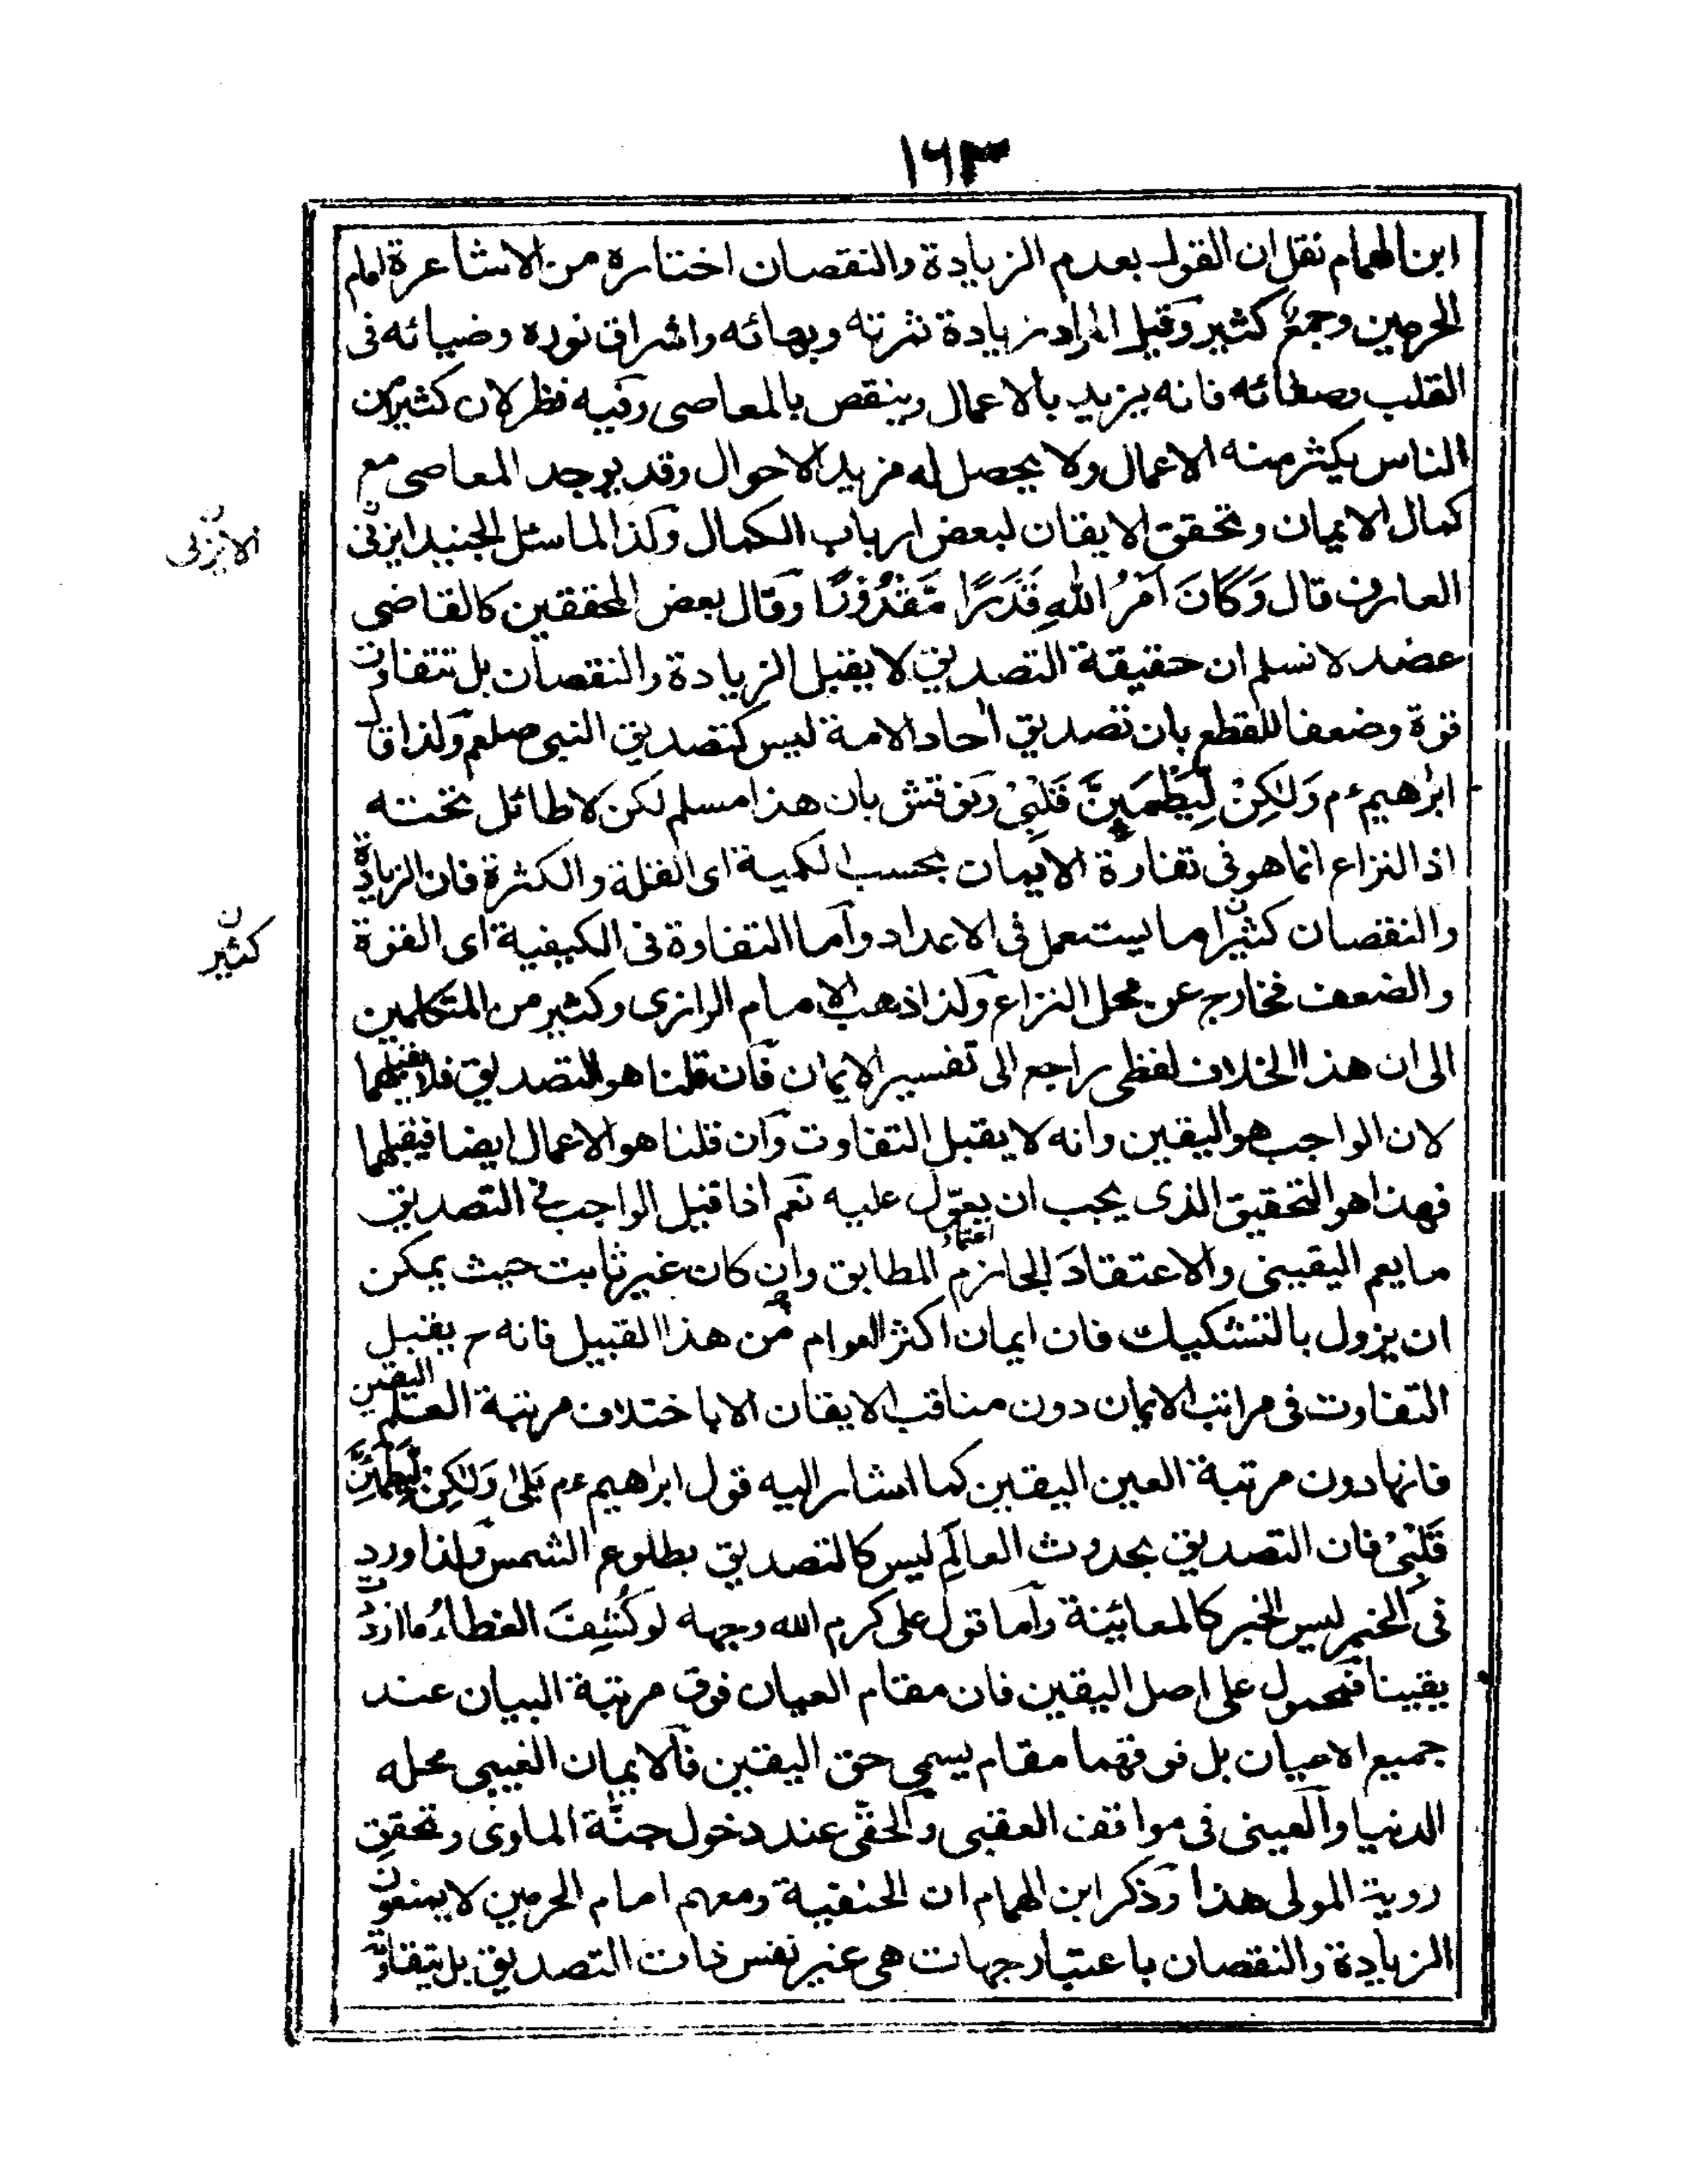 ١٦٣
ابن الهمام نقل ان القول بعدم الزيادة والنقصان اختاره من الاشاعرة امام
الحرمين وجمع كثير وقيل المراد زيادة ثمرته وبهائه واشراق نوره وضيائه فى
القلب وصفائه فانه يزيد بالاعمال وينقص بالمعاصى وفيه نظر لان كثيرا من
الناس يكثر منه الاعمال ولا يحصل له مزيد الاحوال وقد يوجد المعاصى مع
كمال الايمان وتحقق الايقان لبعض ارباب الكمال وكذا لما سئل الجنيد ايزنى
الايزنى ن
العارف قال وَكَانَ اَمْرُ اللهِ قَدَرًا مَّقْدُوْرًا وقال بعض المحققين كالقاضى
عضد لا نسلم ان حقيقة التصديق لا يقبل الزيادة والنقصان بل تتفاوت
قوة وضعفا للقطع بان تصديق احاد الامة ليس كتصديق النبى صلعم ولذا قال
ابرٰهيم عم وَلٰكِنْ لِيَطْمَئِنَّ قَلْبِىْ ونوقش بان هذا مسلم لكن لا طائل تحته
اذ النزاع انما هو فى تفاوة الايمان بحسب الكمية اى القلة والكثرة فان الزيادة
والنقصان كثيرا ما يستعمل فى الاعداد واما التفاوة فى الكيفية اى القوة
كثير ن
والضعف فخارج عن محل النزاع ولذا ذهب الامام الرازى وكثير من المتكلمين
الى ان هذا الخلاف لفظى راجع الى تفسير الايمان فان قلنا هو التصديق فلا يقبلهما
لان الواجب هو اليقين وانه لا يقبل التفاوت وان قلنا هو الاعمال ايضا فيقبلهما
فهذا هو التحقيق الذى يجب ان يعوّل عليه نعم اذا قيل الواجب فى التصديق
اعتماد
ما يعم اليقينى والاعتقادَ الجازم المطابق وان كان غير ثابت حيث يمكن
ان يزول بالتشكيك فان ايمان اكثر العوام من هذا القبيل فانه ح يقبل
التفاوت فى مراتب الايمان دون مناقب الايقان الا باختلاف مرتبة العلم اليقين
فانها دون مرتبة العين اليقين كما اشار اليه قول ابرٰهيم عم بَلٰى وَلٰكِنْ لِّيَطْمَئِنَّ
قَلْبِىْ فان التصديق بحدوث العالَم ليس كالتصديق بطلوع الشمس ولذا ورد
فى الخبر ليس الخبر كالمعاينة واما قول على كرم الله وجهه لو كُشِفَ الغطاءُ ما ازددت
يقينا فمحمول على اصل اليقين فان مقام العيان فوق مرتبة البيان عند
جميع الاعيان بل فوقهما مقام يسمى حق اليقين فالايمان الغيبى محله
الدنيا والعينى فى مواقف العقبى والحقّى عند دخول جنّة الماوى وتحقق
روية المولى هذا وذكر ابن الهمام ان الحنفية ومعهم امام الحرمين لا يمنعون
الزيادة والنقصان باعتبار جهات هى غير نفس ذات التصديق بل يتفاوت